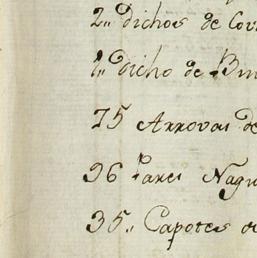 2,, dichos de Cov
1,, dicho de Bm
75 Arrovas de
96 Pares Nagu
35,, Capotes d